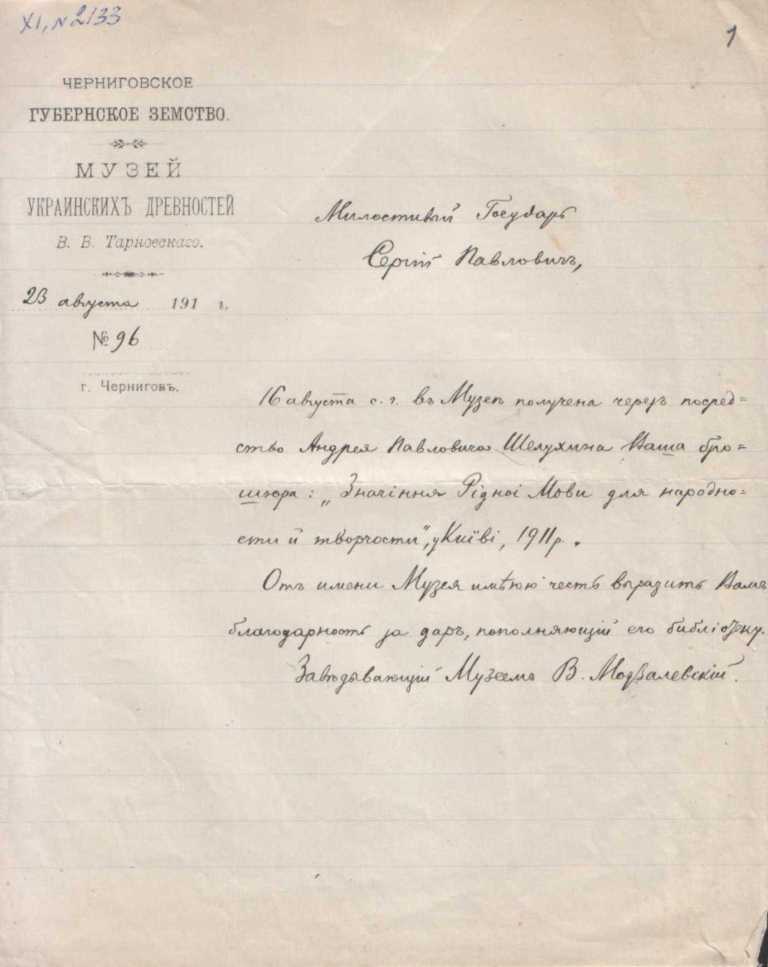 XI, №2133
1
ЧЕРНИГОВСКОЕ
ГУБЕРНСКОЕ ЗЕМСТВО.
МУЗЕЙ
УКРАИНСКИХЪ ДРЕВНОСТЕЙ
В. В. Тарновскаго.
23 августа 191 г.
№ 96
г. Черниговъ.
Милостивый Государь
Сергій Павловичъ,
16 августа с. г. въ Музеѣ получена черезъ посред=
ство Андрея Павловича Шелухина Ваша бро=
шюра: „Значіння Рідноі Мови для народно=
сти й творчости", у Київі, 1911 р.
Отъ имени Музея имѣю честь выразить Вамъ
благодарность за даръ, пополняющій его библіотеку.
Завѣдывающій Музеемъ В. Модзалевскій.